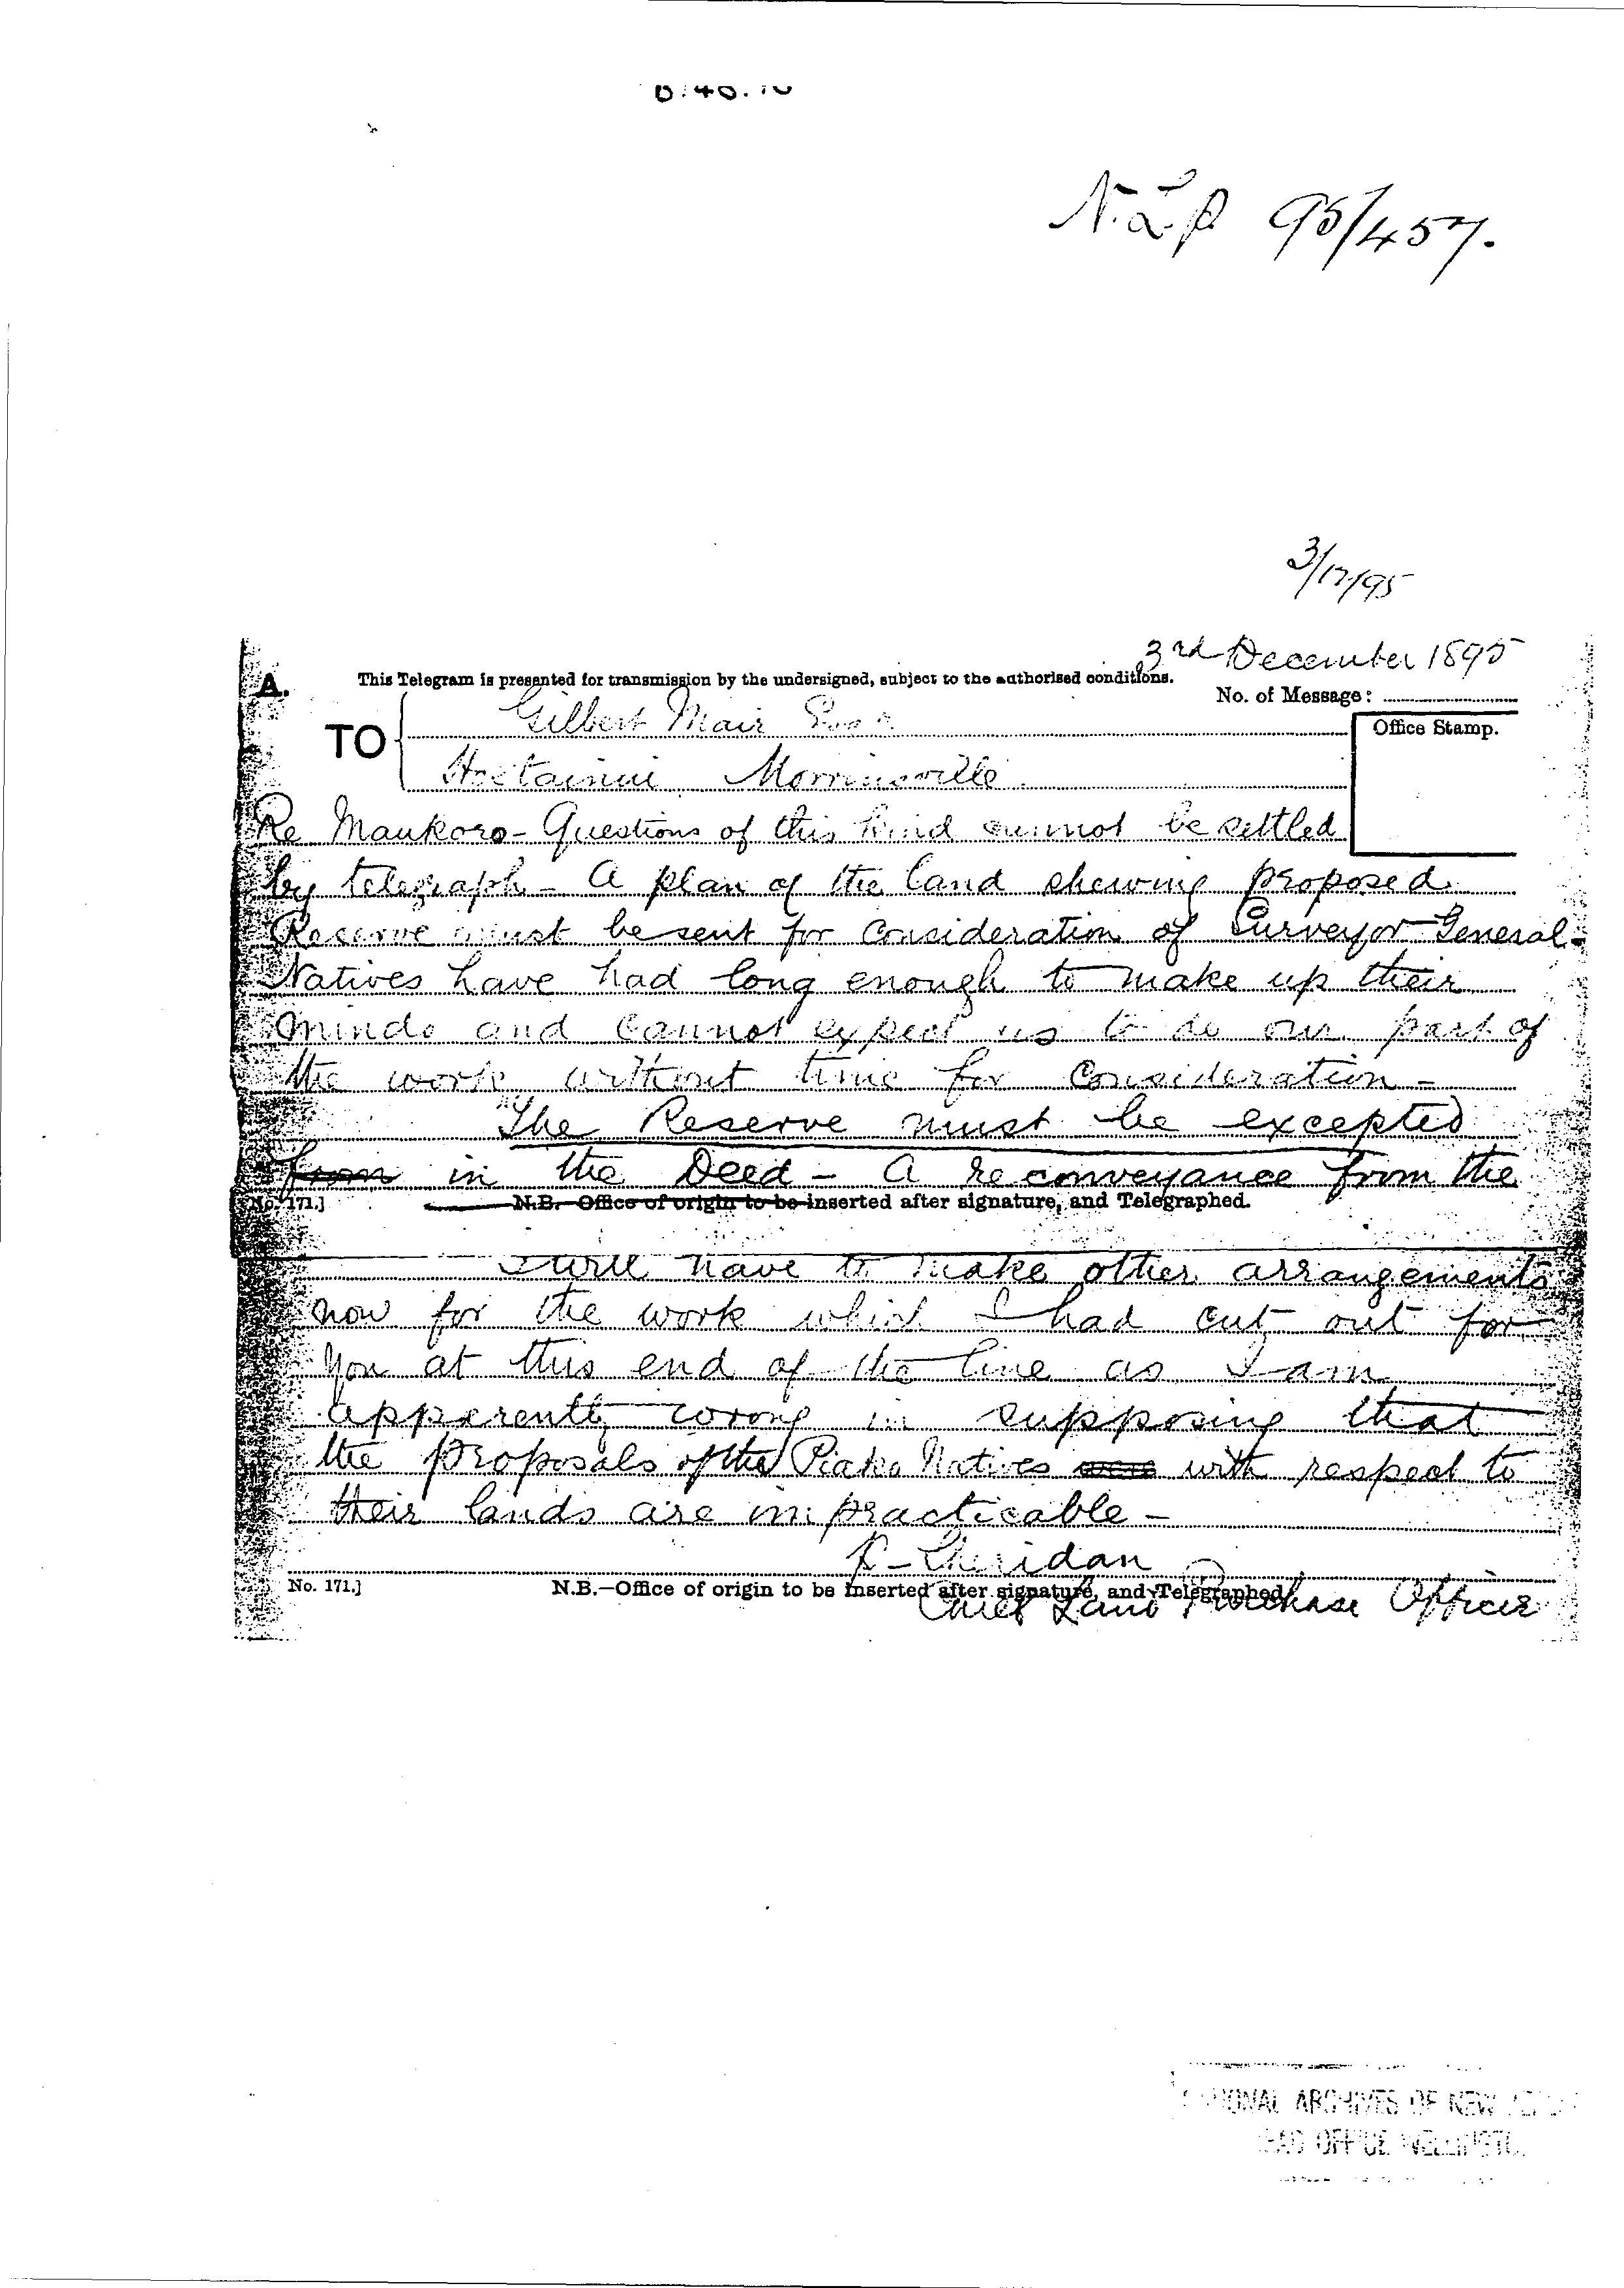 N.L.P 95/457.
3/12/95
3rd December 1895
A.
This Telegram is presented for transmission by the undersigned, subject to the authorised conditions.
No. of Message:
TO
Gilbert Mair Esqr
Office Stamp.
Morrinsville
Re Maukoro - Questions of this kind cannot be settled
by telegraph - A plan of the land shewing proposed
Reserve must be sent for consideration of Surveyor General -
Natives have had long enough to make up their
minds and cannot expect us to do our part of
the work without time for consideration -
The Reserve must be excepted
from in the Deed - A reconveyance from the
No. 171.]
N.B.—Office of origin to be inserted after signature, and Telegraphed.
I will have to make other arrangements
now for the work which I had cut out for
you at this end of the line as I am
apparently wrong in supposing that
the proposals of the Piako Natives were with respect to
their lands are impracticable -
P - Sheridan
No. 171.]
N.B.—Office of origin to be inserted after signature, and Telegraphed.
Chief Land Purchase Officer
ARCHIVES OF NEW
OFFICE